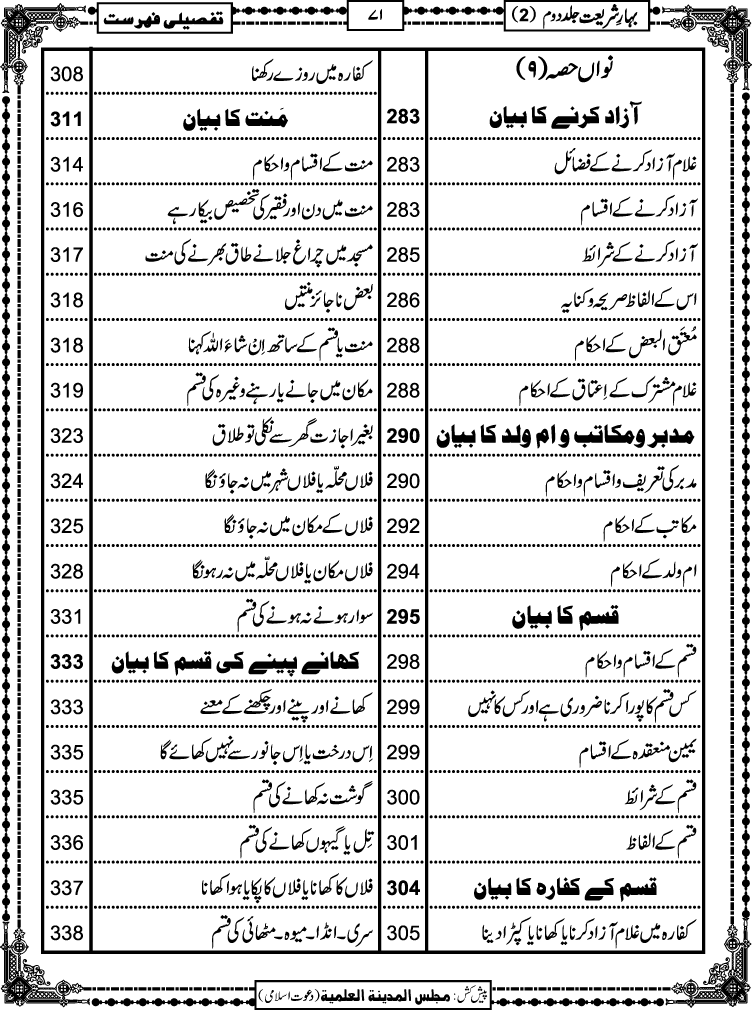 بہارِ شریعت جلد دوم (2)
۷۱
تفصیلی فہرست
نواں حصہ (۹)
آزاد کرنے کا بیان 283
غلام آزاد کرنے کے فضائل 283
آزاد کرنے کے اقسام 283
آزاد کرنے کے شرائط 285
اس کے الفاظ صریحہ و کنایہ 286
مُعتَق البعض کے احکام 288
غلام مشترک کے اِعتاق کے احکام 288
مدبر و مکاتب و ام ولد کا بیان 290
مدبر کی تعریف و اقسام و احکام 290
مکاتب کے احکام 292
ام ولد کے احکام 294
قسم کا بیان 295
قسم کے اقسام و احکام 298
کس قسم کا پورا کرنا ضروری ہے اور کس کا نہیں 299
یمین منعقدہ کے اقسام 299
قسم کے شرائط 300
قسم کے الفاظ 301
قسم کے کفارہ کا بیان 304
کفارہ میں غلام آزاد کرنا یا کھانا یا کپڑا دینا 305
کفارہ میں روزے رکھنا 308
مَنت کا بیان 311
منت کے اقسام و احکام 314
منت میں دن اور فقیر کی تخصیص بیکار ہے 316
مسجد میں چراغ جلانے طاق بھرنے کی منت 317
بعض ناجائز منتیں 318
منت یا قسم کے ساتھ اِنْ شاءَ اللہ کہنا 318
مکان میں جانے یا رہنے وغیرہ کی قسم 319
بغیر اجازت گھر سے نکلی تو طلاق 323
فلاں محلّہ یا فلاں شہر میں نہ جاؤنگا 324
فلاں کے مکان میں نہ جاؤنگا 325
فلاں مکان یا فلاں محلّہ میں نہ رہونگا 328
سوار ہونے نہ ہونے کی قسم 331
کھانے پینے کی قسم کا بیان 333
کھانے اور پینے اور چکھنے کے معنے 333
اِس درخت یا اِس جانور سے نہیں کھائے گا 335
گوشت نہ کھانے کی قسم 335
تِل یا گیہوں کھانے کی قسم 336
فلاں کا کھانا یا فلاں کا پکایا ہوا کھانا 337
سری۔انڈا۔میوہ۔مٹھائی کی قسم 338
پیش کش: مجلس المدینۃ العلمیۃ (دعوت اسلامی)